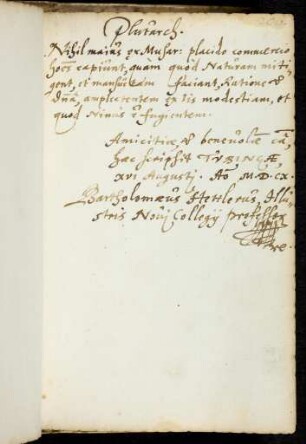 Plutarch.
Nihil maius ex Musar: placido commercio
hoēs capiunt, quàm quòd Naturam miti
gent, et mansuetam faciant, Ratione
dnā, amplectentem ex iis modestiam, et
quod Nimis ē fugientem.
Amicitiæ et benevolē cā,
hæc scripsit TVBINGÆ,
xvi Augustj. Aō M.D.CX.
Bartholomæus Hettlerus, Illu
stris Novj Collegij professor